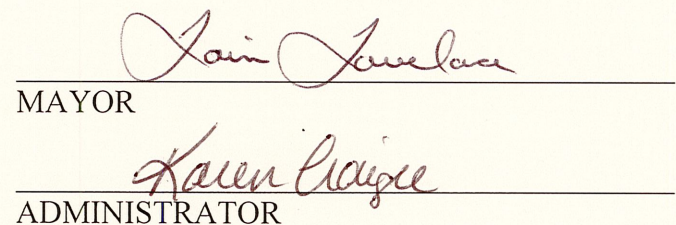 Iain Lovelace
MAYOR
Karen Craigie
ADMINISTRATOR